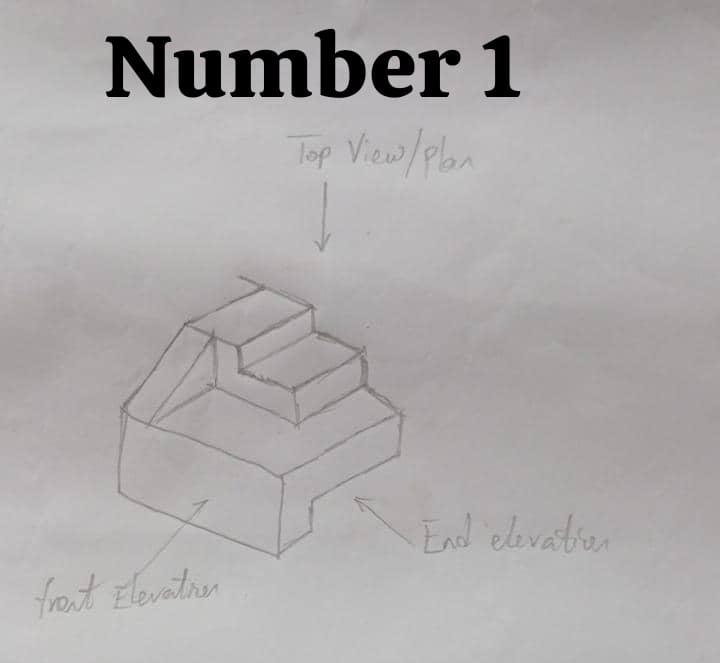 Number 1
Top View/plan
End elevation
front Elevation